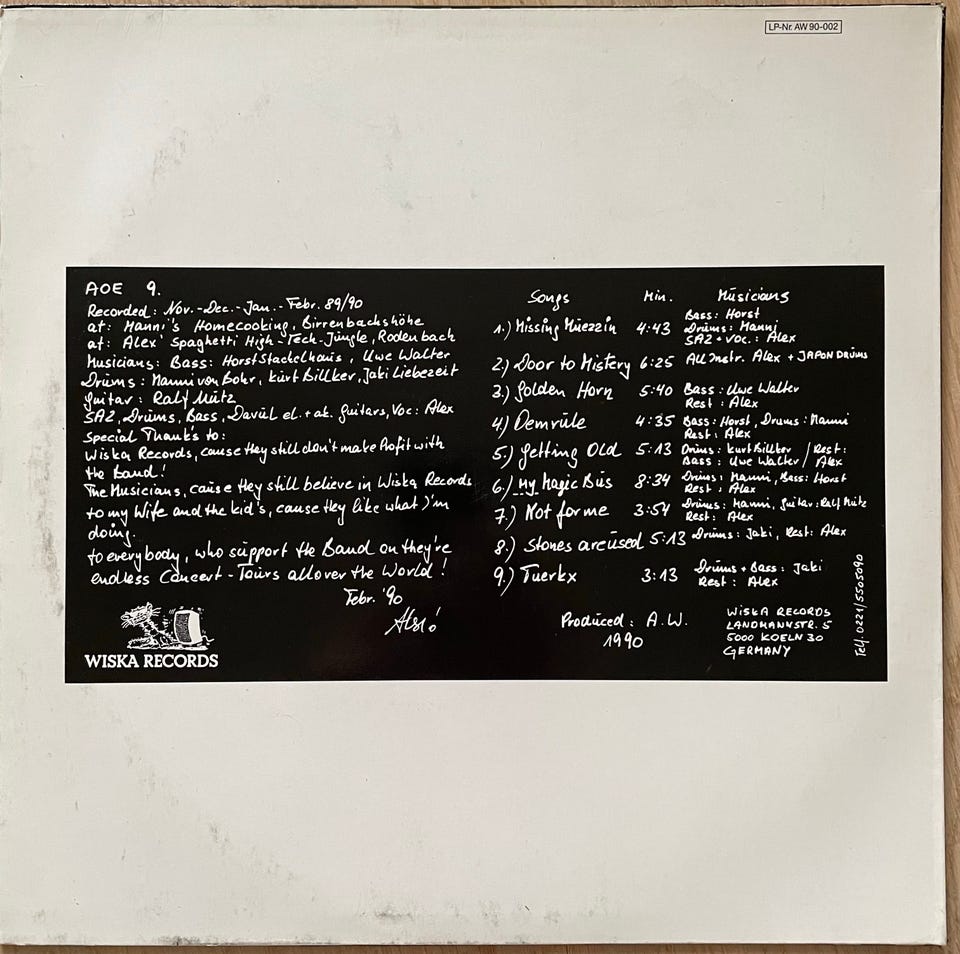 LP-Nr. AW 90-002
AOE 9.
Recorded: Nov.-Dec.-Jan.-Febr. 89/90
at: Manni's Homecooking, Birrenbachshöhe
at: Alex' Spaghetti High-Tech-Jungle, Rodenbach
Musicians: Bass: Horst Stackelhaus, Uwe Walter
Drums: Manni von Bohr, Kurt Billker, Jaki Liebezeit
Guitar: Ralf Mütz
SAZ, Drums, Bass, Davul el.+ak. guitars, Voc: Alex
Special Thank's to:
Wiska Records, cause they still don't make Profit with
the Band!
The Musicians, cause they still believe in Wiska Records
to my Wife and the kid's, cause they like what I'm
doing.
to everybody, who support the Band on they're
endless Concert-Tours allover the World!
Febr. '90
WISKA RECORDS
Songs Min. Musicians
1.) Missing Müezzin 4:43 Bass: Horst
Drums: Manni
SAZ + Voc.: Alex
2.) Door to Mistery 6:25 All Instr. Alex + JAPON DRUMS
3.) Golden Horn 5:40 Bass: Uwe Walter
Rest: Alex
4.) Demrule 4:35 Bass: Horst, Drums: Manni
Rest: Alex
5.) Getting Old 5:13 Drums: Kurt Billker / Rest:
Bass: Uwe Walter / Alex
6.) My Magic Bus 8:34 Drums: Manni, Bass: Horst
Rest: Alex
7.) Not for me 3:54 Drums: Manni, Guitar: Ralf Mütz
Rest: Alex
8.) Stones are used 5:13 Drums: Jaki, Rest: Alex
9.) Tuerkx 3:13 Drums + Bass: Jaki
Rest: Alex
Produced: A.W.
1990
WISKA RECORDS
LANDMANNSTR. 5
5000 KOELN 30
GERMANY
Telf. 0221/5505090